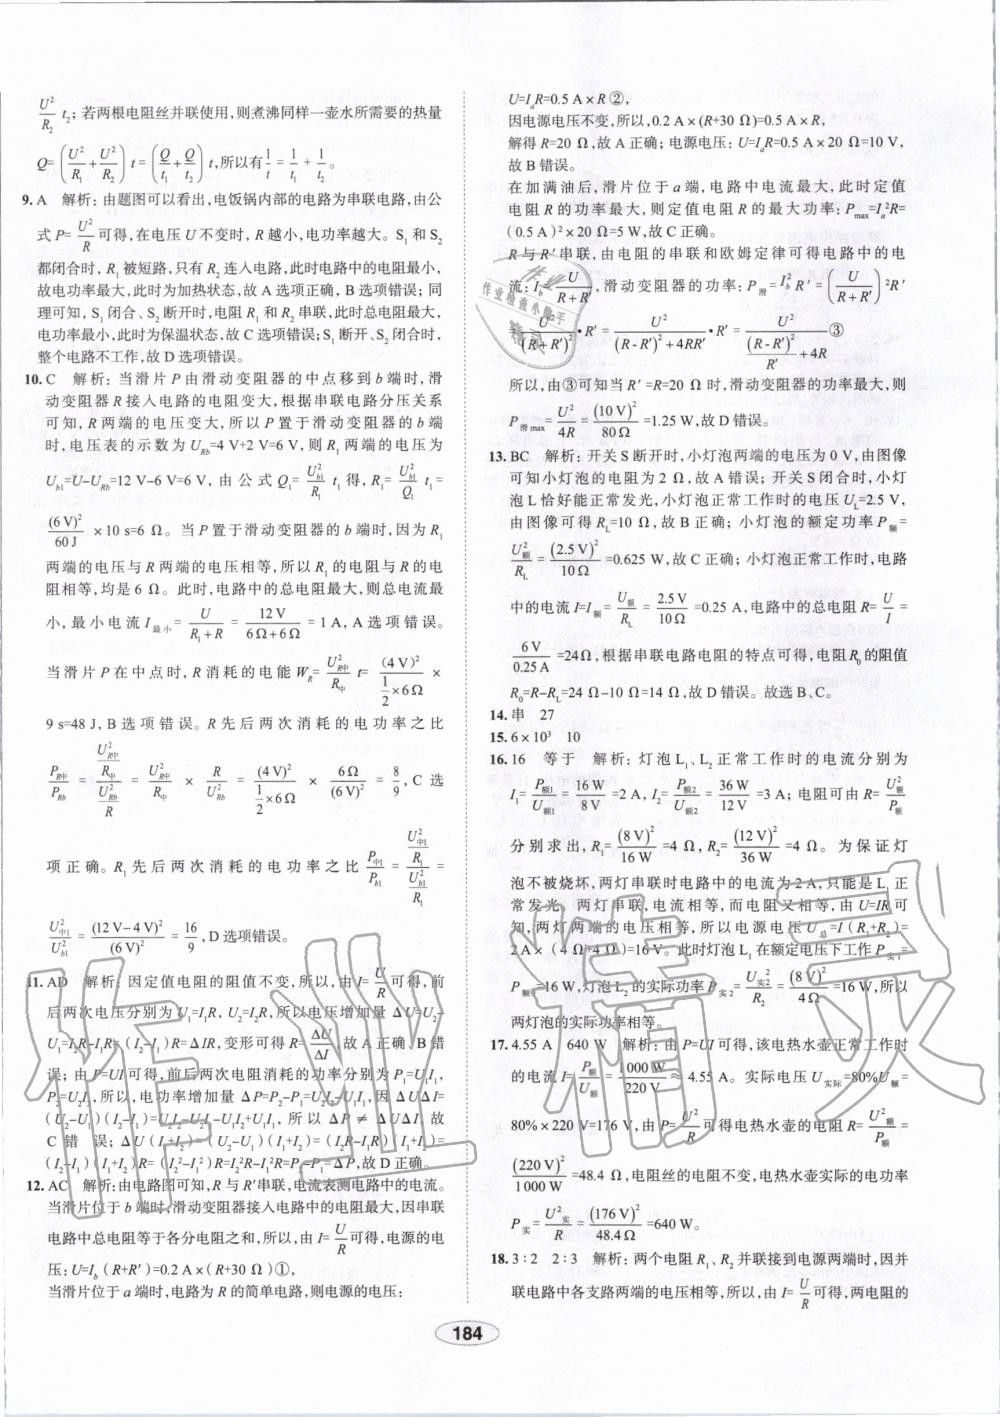 U²/R₂ t₂；若两根电阻丝并联使用，则煮沸同样一壶水所需要的热量
Q=(U²/R₁+U²/R₂)t=(Q/t₁+Q/t₂)t，所以有1/t=1/t₁+1/t₂。
9. A　解析：由题图可以看出，电饭锅内部的电路为串联电路，由公
式 P=U²/R可得，在电压 U 不变时，R 越小，电功率越大。S₁ 和 S₂
都闭合时，R₁ 被短路，只有 R₂ 连入电路，此时电路中的电阻最小，
故电功率最大，此时为加热状态，故 A 选项正确，B 选项错误；同
理可知，S₁ 闭合、S₂ 断开时，电阻 R₁ 和 R₂ 串联，此时总电阻最大，
电功率最小，此时为保温状态，故 C 选项错误；S₁ 断开、S₂ 闭合时，
整个电路不工作，故 D 选项错误。
10. C　解析：当滑片 P 由滑动变阻器的中点移到 b 端时，滑
动变阻器 R 接入电路的电阻变大，根据串联电路分压关系
可知，R 两端的电压变大，所以 P 置于滑动变阻器的 b 端
时，电压表的示数为 U_Rb=4 V+2 V=6 V，则 R₁ 两端的电压为
U_b1=U-U_Rb=12 V-6 V=6 V，由公式 Q₁=U²_b1/R₁ t₁得，R₁=U²_b1/Q₁ t₁=
(6 V)²/60 J ×10 s=6 Ω。当 P 置于滑动变阻器的 b 端时，因为 R₁
两端的电压与 R 两端的电压相等，所以 R 的电阻与 R₁的电
阻相等，均是 6 Ω。此时，电路中的总电阻最大，则总电流最
小，最小电流 I最小=U/(R₁+R)=12 V/(6 Ω+6 Ω)=1 A，A 选项错误。
当滑片 P 在中点时，R 消耗的电能 W_R=U²_R中/R中 t=(4 V)²/(1/2×6 Ω)×
9 s=48 J，B 选项错误。R 先后两次消耗的电功率之比
P_R中/P_Rb=(U²_R中/R中)/(U²_Rb/R)=U²_R中/R中×R/U²_Rb=(4 V)²/(1/2×6 Ω)×6 Ω/(6 V)²=8/9，C 选
项正确。R₁先后两次消耗的电功率之比P中1/P_b1=(U²中1/R₁)/(U²_b1/R₁)=
U²中1/U²_b1=(12 V-4 V)²/(6 V)²=16/9，D 选项错误。
11. AD　解析：因定值电阻的阻值不变，所以，由 I=U/R可得，前
后两次电压分别为 U₁=I₁R，U₂=I₂R，所以电压增加量 ΔU=U₂-
U₁=I₂R-I₁R=(I₂-I₁)R=ΔIR，变形可得 R=ΔU/ΔI，故 A 正确、B 错
误；由 P=UI 可得，前后两次电阻消耗的功率分别为 P₁=U₁I₁，
P₂=U₂I₂，所以，电功率增加量 ΔP=P₂-P₁=U₂I₂-U₁I₁，因 ΔUΔI=
(U₂-U₁)(I₂-I₁)=U₂I₂-U₁I₂-U₂I₁+U₁I₁，所以 ΔP≠ΔUΔI，故
C 错误；ΔU(I₁+I₂)=(U₂-U₁)(I₁+I₂)=(I₂R-I₁R)(I₁+I₂)=
(I₂-I₁)(I₁+I₂)R=(I₂²-I₁²)R=I₂²R-I₁²R=P₂-P₁=ΔP，故 D 正确。
12. AC　解析：由电路图可知，R 与 R′串联，电流表测电路中的电流。
当滑片位于 b 端时，滑动变阻器接入电路中的电阻最大，因串联
电路中总电阻等于各分电阻之和，所以，由 I=U/R可得，电源的电
压：U=I_b(R+R′)=0.2 A×(R+30 Ω)①，
当滑片位于 a 端时，电路为 R 的简单电路，则电源的电压：
U=I_aR=0.5 A×R ②，
因电源电压不变，所以，0.2 A×(R+30 Ω)=0.5 A×R，
解得 R=20 Ω，故 A 正确；电源电压：U=I_aR=0.5 A×20 Ω=10 V，
故 B 错误。
在加满油后，滑片位于 a 端，电路中电流最大，此时定值
电阻 R 的功率最大，则定值电阻 R 的最大功率：P_max=I_a²R=
(0.5 A)²×20 Ω=5 W，故 C 正确。
R 与 R′串联，由电阻的串联和欧姆定律可得电路中的电
流：I_b=U/(R+R′)，滑动变阻器的功率：P滑=I_b²R′=(U/(R+R′))²R′
=U²/(R+R′)²•R′=U²/((R-R′)²+4RR′)•R′=U²/((R-R′)²/R′+4R) ③
所以，由③可知当 R′=R=20 Ω 时，滑动变阻器的功率最大，则
P滑max=U²/4R=(10 V)²/80 Ω=1.25 W，故 D 错误。
13. BC　解析：开关 S 断开时，小灯泡两端的电压为 0 V，由图像
可知小灯泡的电阻为 2 Ω，故 A 错误；开关 S 闭合时，小灯
泡 L 恰好能正常发光，小灯泡正常工作时的电压 U_L=2.5 V，
由图像可得 R_L=10 Ω，故 B 正确。小灯泡的额定功率 P额=
U²额/R_L=(2.5 V)²/10 Ω=0.625 W，故 C 正确；小灯泡正常工作时，电路
中的电流 I=I额=U额/R_L=2.5 V/10 Ω=0.25 A，电路中的总电阻 R=U/I=
6 V/0.25 A=24Ω，根据串联电路电阻的特点可得，电阻 R₀的阻值
R₀=R-R_L=24 Ω-10 Ω=14 Ω，故 D 错误。故选 B、C。
14. 串　27
15. 6×10³　10
16. 16　等于　解析：灯泡 L₁、L₂正常工作时的电流分别为
I₁=P额1/U额1=16 W/8 V=2 A，I₂=P额2/U额2=36 W/12 V=3 A；电阻可由 R=U²额/P额
分别求出，R₁=(8 V)²/16 W=4 Ω，R₂=(12 V)²/36 W=4 Ω。为保证灯
泡不被烧坏，两灯串联时电路中的电流为 2 A，只能是 L₁ 正
常发光。两灯串联，电流相等，而电阻又相等，由 U=IR 可
知，两灯两端的电压相等，所以电源电压 U总=I(R₁+R₂)=
2 A×(4 Ω+4 Ω)=16 V。此时灯泡 L₁ 在额定电压下工作 P实1=
P额1=16 W，灯泡 L₂ 的实际功率 P实2=U²实2/R₂=(8 V)²/4 Ω=16 W，所以
两灯泡的实际功率相等。
17. 4.55 A　640 W　解析：由 P=UI 可得，该电热水壶正常工作时
的电流 I=P额/U额=1 000 W/220 V≈4.55 A。实际电压 U实际=80%U额=
80%×220 V=176 V，由 P=U²/R可得电热水壶的电阻 R=U²额/P额=
(220 V)²/1 000 W=48.4 Ω，电阻丝的电阻不变，电热水壶实际的电功率
P实=U²实/R=(176 V)²/48.4 Ω=640 W。
18. 3∶2　2∶3　解析：两个电阻 R₁、R₂ 并联接到电源两端时，因并
联电路中各支路两端的电压相等，所以，由 I=U/R可得，两电阻的
184
作业精灵
作业检查小助手